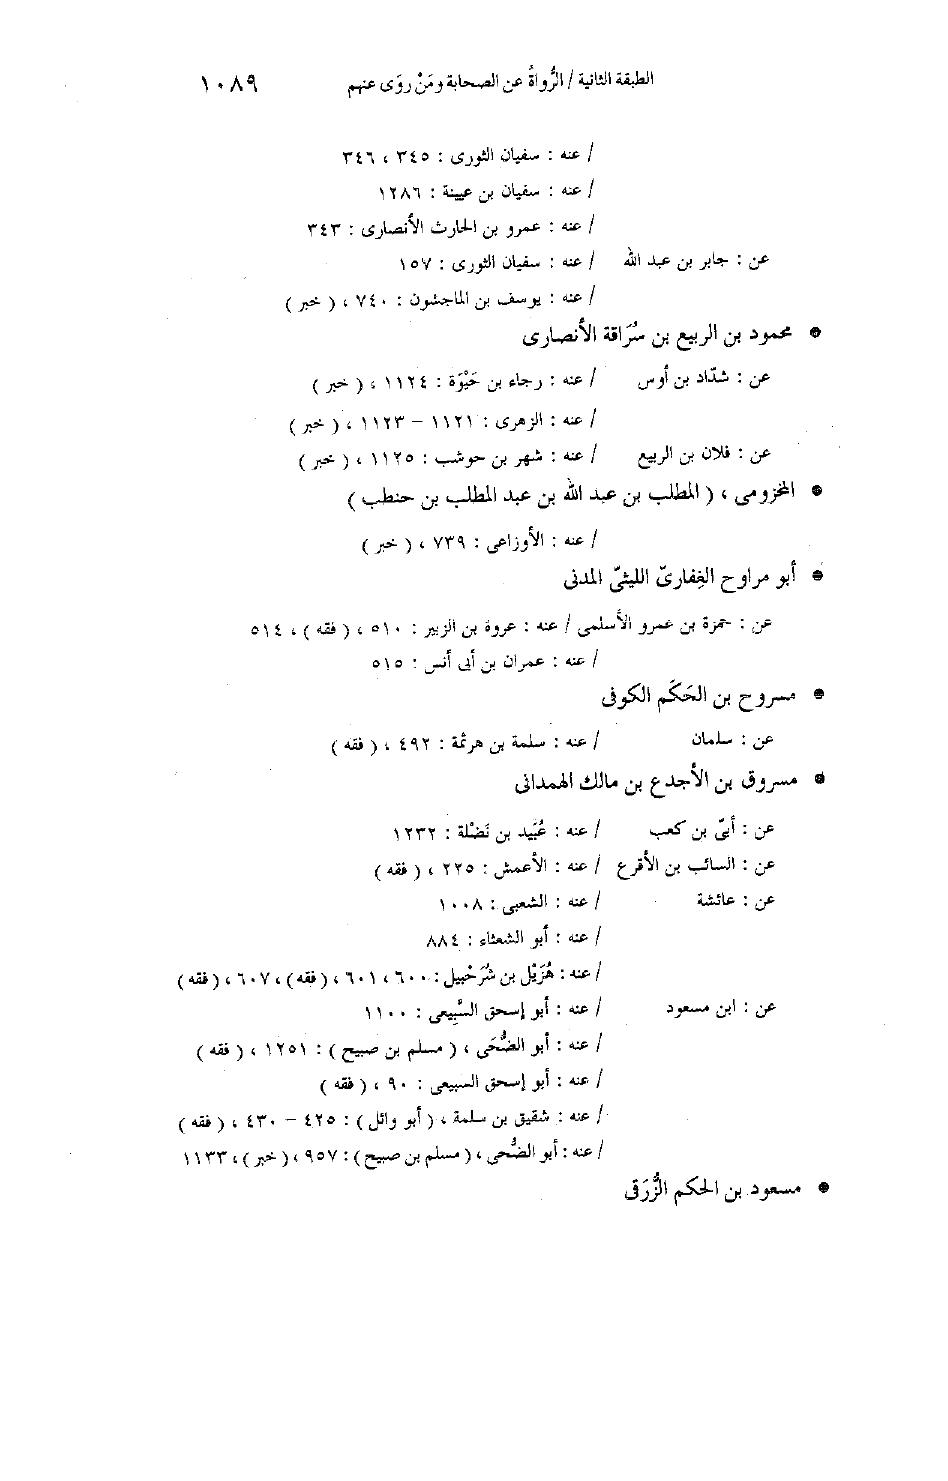 الطبقة الثانية / الرُّواةُ عن الصحابة ومَنْ روَى عنهم ١٠٨٩
/ عنه : سفيان الثورى : ٣٤٥ ، ٣٤٦
/ عنه : سفيان بن عيينة : ١٢٨٦
/ عنه : عمرو بن الحارث الأنصارى : ٣٤٣
عن : جابر بن عبد الله / عنه : سفيان الثورى : ١٥٧
/ عنه : يوسف بن الماجشون : ٧٤٠ ، ( خبر )
● محمود بن الربيع بن سُرَاقة الأنصارى
عن : شدّاد بن أوس / عنه : رجاء بن حَيْوَة : ١١٢٤ ، ( خبر )
/ عنه : الزهرى : ١١٢١ – ١١٢٣ ، ( خبر )
عن : فلان بن الربيع / عنه : شهر بن حوشب : ١١٢٥ ، ( خبر )
● المخزومى ، ( المطلب بن عبد الله بن عبد المطلب بن حنطب )
/ عنه : الأوزاعى : ٧٣٩ ، ( خبر )
● أبو مراوح الغِفارىّ الليثىّ المدنى
عن : حمزة بن عمرو الأسلمى / عنه : عروة بن الزبير : ٥١٠ ، ( فقه ) ، ٥١٤
/ عنه : عمران بن أبى أنس : ٥١٥
● مسروح بن الحَكَم الكوفى
عن : سلمان / عنه : سلمة بن هرثمة : ٤٩٢ ، ( فقه )
● مسروق بن الأجدع بن مالك الهمدانى
عن : أبىّ بن كعب / عنه : عُبَيد بن نَضْلة : ١٢٣٢
عن : السائب بن الأقرع / عنه : الأعمش : ٢٢٥ ، ( فقه )
عن : عائشة / عنه : الشعبى : ١٠٠٨
/ عنه : أبو الشعثاء : ٨٨٤
/ عنه : هُزَيْل بن شُرَحْبيل : ٦٠٠ ، ٦٠١ ، ( فقه ) ، ٦٠٧ ، ( فقه )
عن : ابن مسعود / عنه : أبو إسحق السَّبِيعى : ١١٠٠
/ عنه : أبو الضُّحَى ، ( مسلم بن صبيح ) : ١٢٥١ ، ( فقه )
/ عنه : أبو إسحق السبيعى : ٩٠ ، ( فقه )
/ عنه : شقيق بن سلمة ، ( أبو وائل ) : ٤٢٥ – ٤٣٠ ، ( فقه )
/ عنه : أبو الضُّحى ، ( مسلم بن صبيح ) : ٩٥٧ ، ( خبر ) ، ١١٣٣
● مسعود بن الحكم الزُّرَقى